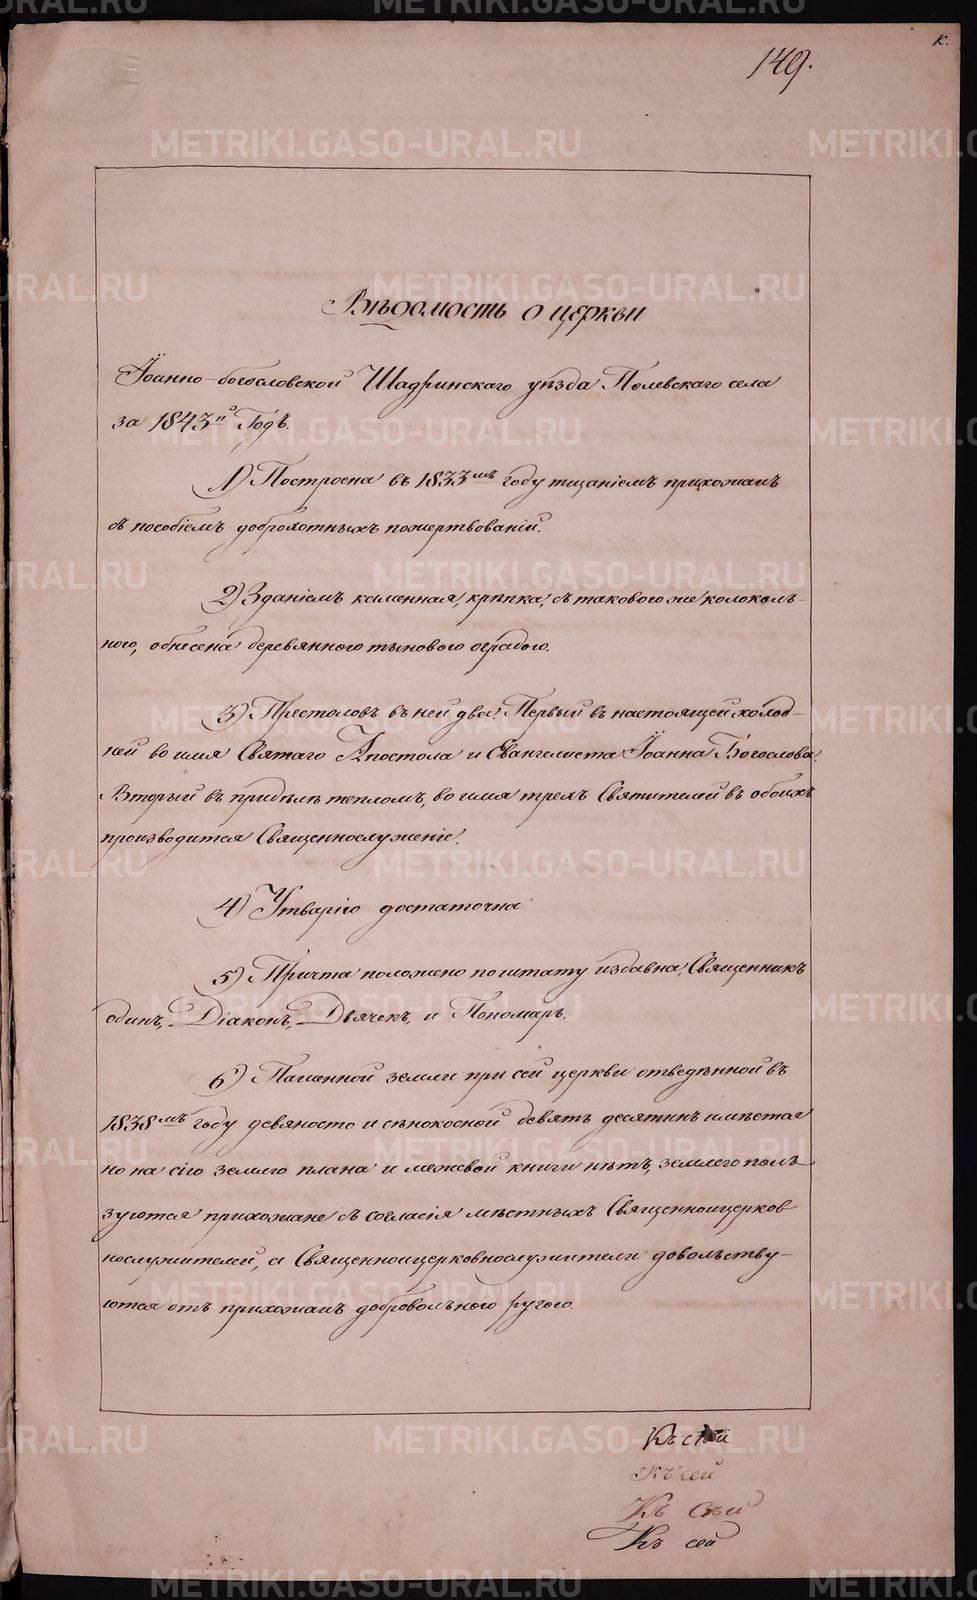 к.
149.
Вѣдомость о церкви
Іоанно-богословской Шадринскаго уѣзда Полевскаго села
за 1843й Годъ.
1) Построена въ 1833мъ году тщаніемъ прихожанъ
съ пособіемъ доброхотныхъ пожертвованій.
2) Зданіемъ каменная, крѣпка, съ таковою же колоколь-
ною, обнесена деревянною тыновою оградою.
3) Престоловъ въ ней два: Первый въ настоящей холод-
ней во имя Святаго Апостола и Евангелиста Іоанна Богослова.
Вторый въ придѣлѣ тепломъ, во имя трехъ Святителей въ обоихъ
производится Священнослуженіе.
4) Утварію достаточна
5) Причта положено по штату издавна, Священникъ
одинъ, Діаконъ, Дьячекъ, и Пономарь.
6) Пашенной земли при сей церкви отведѣнной въ
1838мъ году девяносто и сѣнокосной девять десятинъ имѣется
но на сію землю плана и межевой книги нѣтъ, землею поль-
зуются прихожане съ согласія мѣстныхъ Священноцерков
нослужителей, а Священноцерковнослужители довольству-
ются отъ прихожанъ добровольною ругою.
Къ сѣй
Къ сей
Къ Сѣй
Къ сей
METRIKI.GASO-URAL.RU